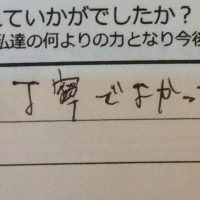 れていかがでしたか？
私達の何よりの力となり今後
丁寧でよかっ